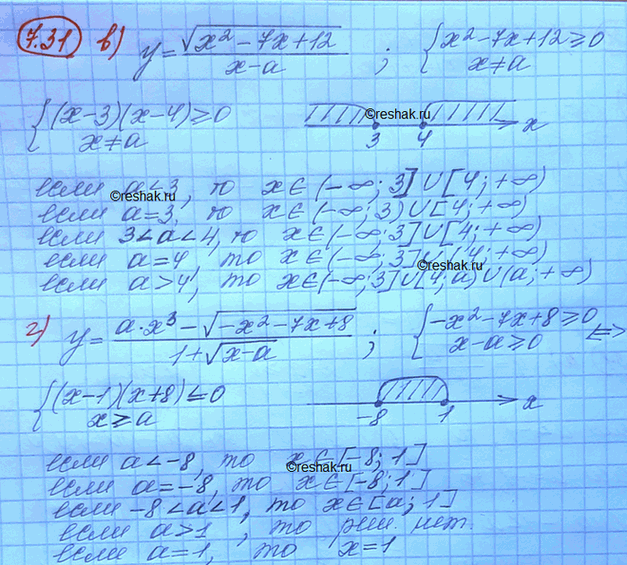 7.31 в) y = √(x² − 7x + 12) / (x − a) ; { x² − 7x + 12 ≥ 0
x ≠ a
{ (x−3)(x−4) ≥ 0
x ≠ a
3 4 x
©reshak.ru
если a < 3, то x ∈ (−∞; 3] ∪ [4; +∞)
©reshak.ru
если a = 3, то x ∈ (−∞; 3) ∪ [4; +∞)
если 3 < a < 4, то x ∈ (−∞; 3] ∪ [4; +∞)
если a = 4, то x ∈ (−∞; 3] ∪ (4; +∞)
©reshak.ru
если a > 4, то x ∈ (−∞; 3] ∪ [4; a) ∪ (a; +∞)
г) y = (a·x³ − √(−x² − 7x + 8)) / (1 + √(x − a)) ; { −x² − 7x + 8 ≥ 0
x − a ≥ 0 ⇔
{ (x−1)(x+8) ≤ 0
x ≥ a
−8 1 x
если a < −8, то x ∈ [−8; 1]
©reshak.ru
если a = −8, то x ∈ [−8; 1]
если −8 < a < 1, то x ∈ [a; 1]
если a > 1, то реш. нет
если a = 1, то x = 1